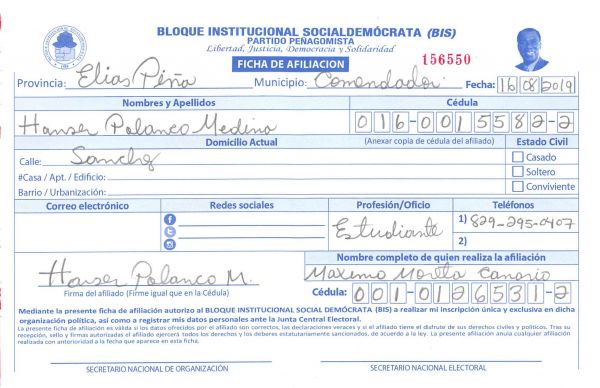 BLOQUE INSTITUCIONAL SOCIALDEMÓCRATA (BIS)
PARTIDO PEÑAGOMISTA
Libertad, Justicia, Democracia y Solidaridad
156550
FICHA DE AFILIACION
Provincia: Elias Piña Municipio: Comendador Fecha: 16/08/2019
Nombres y Apellidos Cédula
Hanser Polanco Medina 016-0015582-2
Domicilio Actual (Anexar copia de cédula del afiliado) Estado Civil
Calle: Sanchez Casado
#Casa / Apt. / Edificio: Soltero
Barrio / Urbanización: Conviviente
Correo electrónico Redes sociales Profesión/Oficio Teléfonos
Estudiante 1) 829-295-0407
2)
Nombre completo de quien realiza la afiliación
Hanser Polanco M. Maximo Canario
Firma del afiliado (Firme igual que en la Cédula) Cédula: 001-0126531-2
Mediante la presente ficha de afiliación autorizo al BLOQUE INSTITUCIONAL SOCIAL DEMÓCRATA (BIS) a realizar mi inscripción única y exclusiva en dicha
organización política, así como a registrar mis datos personales ante la Junta Central Electoral.
La presente ficha de afiliación es válida si los datos ofrecidos por el afiliado son correctos, las declaraciones veraces y si el afiliado tiene el disfrute de sus derechos civiles y políticos. Tras su
recepción, sello y firmas autorizadas el afiliado ejercerá todos los derechos y los deberes estatutariamente sancionados, de acuerdo a la ley. La presente afiliación anula cualquier afiliación
realizada con anterioridad a la fecha que aparece en esta ficha.
SECRETARIO NACIONAL DE ORGANIZACIÓN SECRETARIO NACIONAL ELECTORAL